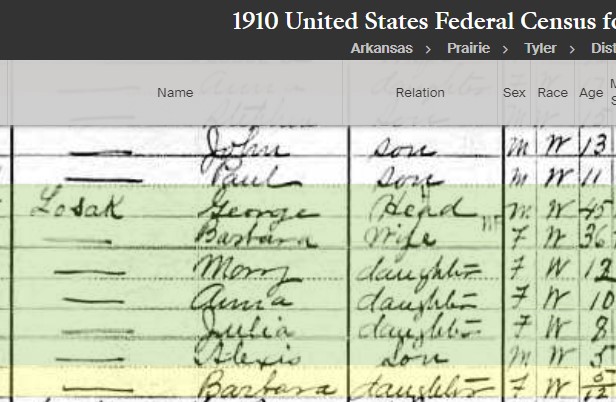 1910 United States Federal Census fo
Arkansas > Prairie > Tyler > Dist
Name Relation Sex Race Age
John son m W 13
Paul son m W 11
Losak George Head m W 45
Barbara Wife F W 36
Mary daughter F W 12
Annia daughter F W 10
Julia daughter F W 8
Alexis Son m W 5
Barbara daughter F W 5/12